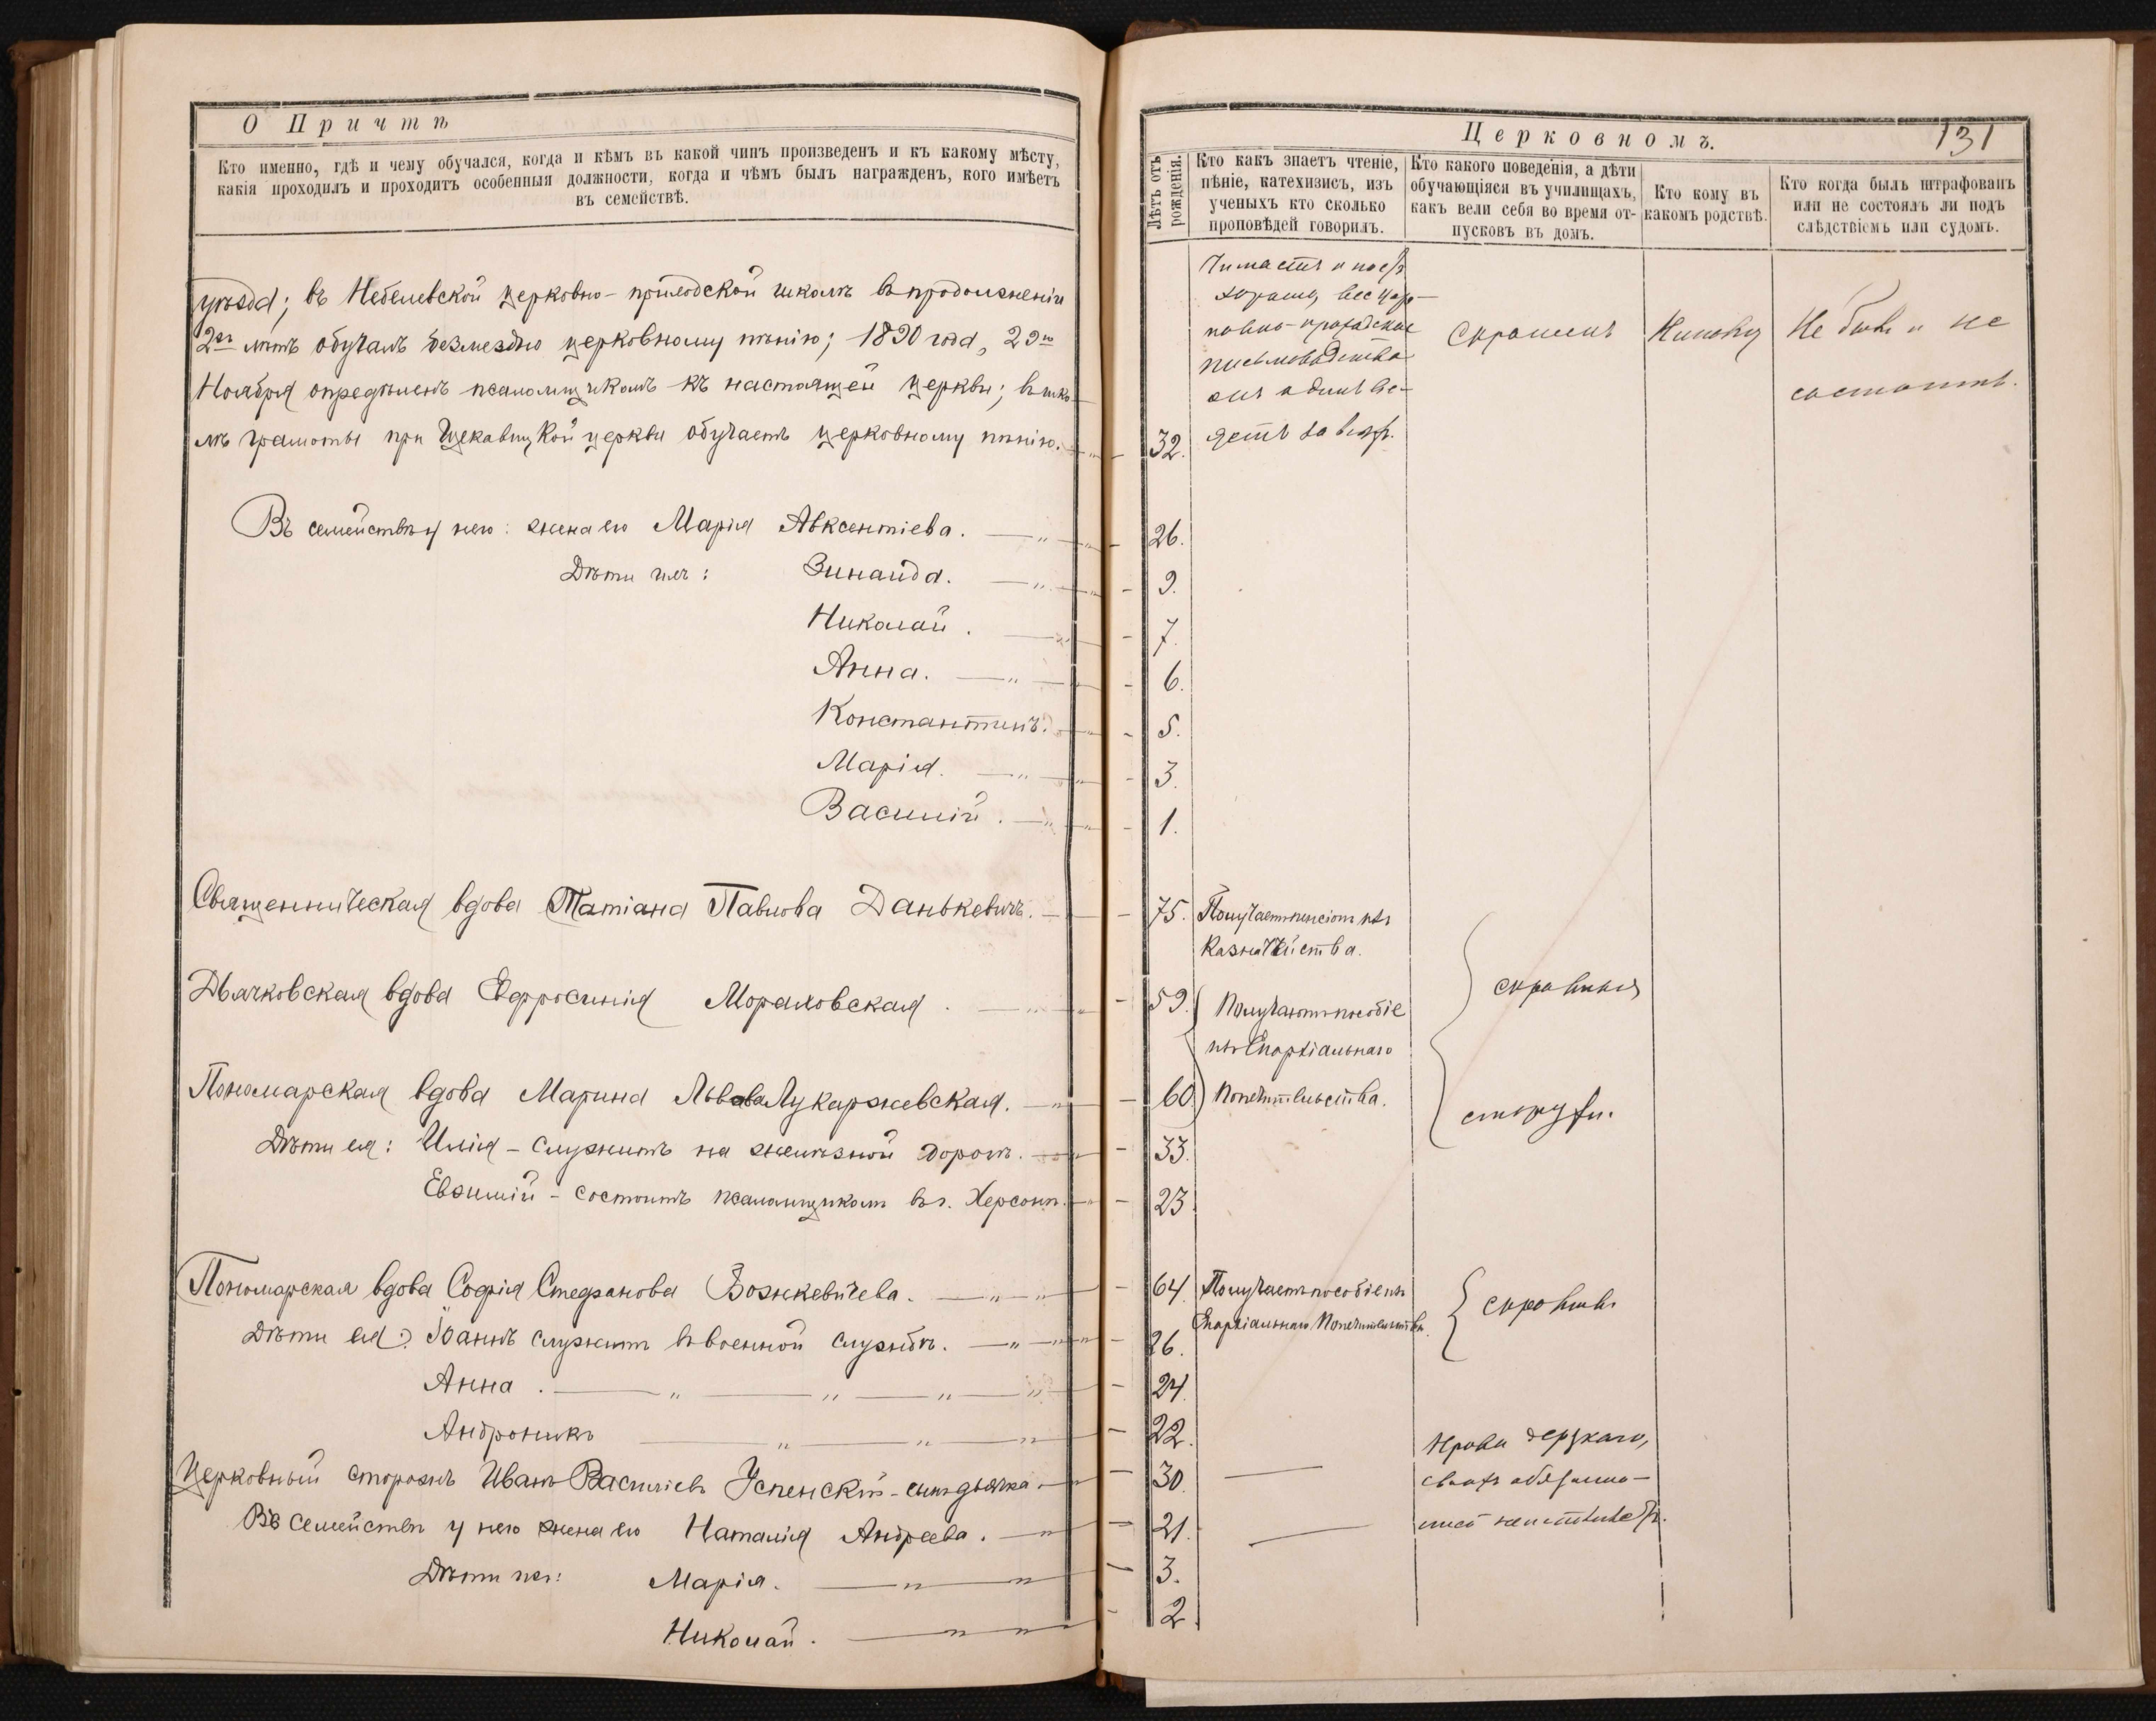 О Причтѣ
Кто именно, гдѣ и чему обучался, когда и кѣмъ въ какой чинъ произведенъ и къ какому мѣсту,
какія проходилъ и проходитъ особенныя должности, когда и чѣмъ былъ награжденъ, кого имѣетъ
въ семействѣ.
уѣзда; въ Небелевской церковно-приходской школѣ въ продолженіи
2хъ лѣтъ обучалъ безмездно церковному пѣнію; 1890 года, 29го
Ноября опредѣленъ псаломщикомъ къ настоящей церкви; въ шко-
лѣ грамоты при Щекавицкой церкви обучаетъ церковному пѣнію.
Въ семействѣ у него: жена его Марія Авксентіева.
Дѣти ихъ: Зинаида.
Николай.
Анна.
Константинъ.
Марія.
Василій.
Священническая вдова Татіана Павлова Данькевичъ.
Дьячковская вдова Евфросинія Мораховская.
Пономарская вдова Марина Львова Лукаржевская.
Дѣти ея: Илія - служитъ на желѣзной дорогѣ.
Евѳимій - состоитъ псаломщикомъ въ г. Херсонѣ.
Пономарская вдова Софія Стефанова Вожкевичева.
Дѣти ея: Іоаннъ служитъ въ военной службѣ.
Анна.
Андроникъ
Церковный сторожъ Иванъ Василіевъ Успенскій - сынъ дьячка.
Въ семействѣ у него жена его Наталія Андреева.
Дѣти ихъ: Марія.
Николай.
Церковномъ.
131
Лѣтъ отъ
рожденія.
Кто какъ знаетъ чтеніе,
пѣніе, катехизисъ, изъ
ученыхъ кто сколько
проповѣдей говорилъ.
Кто какого поведенія, а дѣти
обучающіяся въ училищахъ,
какъ вели себя во время от-
пусковъ въ домъ.
Кто кому въ
какомъ родствѣ.
Кто когда былъ штрафованъ
или не состоялъ ли подъ
слѣдствіемъ или судомъ.
Читаетъ и поетъ
хорошо, все цер-
ковно-приходское
письмоводство
онъ одинъ ве-
32. детъ
Скроменъ
Никому
Не былъ и не
состоитъ.
26.
9.
7.
6.
5.
3.
1.
75. Получаетъ пенсіонъ изъ
Казначейства.
59. Получаютъ пособіе
изъ Епархіальнаго
60. Попечительства.
скромныя
33.
23.
64. Получаетъ пособіе изъ
Епархіальнаго Попечительства.
26.
24.
22.
30.
21.
3.
2.
Нрава дерзкаго,
своихъ обязанно-